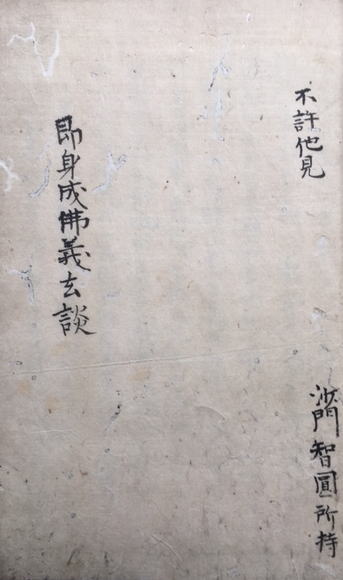 不許他見
沙門智圓所持
即身成佛義玄談